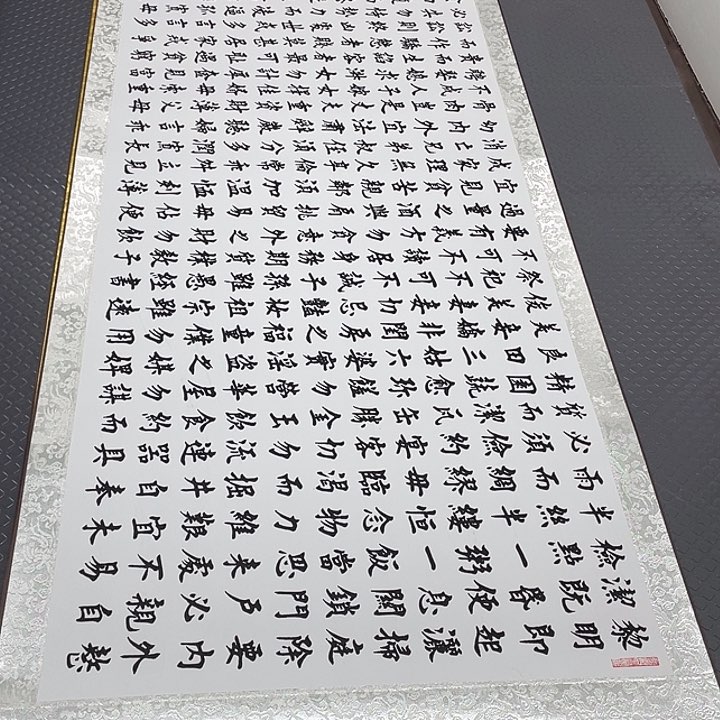 黎明即起灑掃庭除要內外整
潔既昏便息關鎖門戶必親自
檢點一粥一飯當思來處不易
半絲半縷恆念物力維艱宜未
雨而綢繆毋臨渴而掘井自奉
必須儉約宴客切勿流連器具
質而潔瓦缶勝金玉飲食約而
精園蔬愈珍饈勿營華屋勿謀
良田三姑六婆實淫盜之媒婢
美妾嬌非閨房之福童僕勿用
俊美妻妾切忌豔妝祖宗雖遠
祭祀不可不誠子孫雖愚經書
不可不讀居身務期質樸教子
要有義方勿貪意外之財勿飲
過量之酒與肩挑貿易毋佔便
宜見貧苦親鄰須加溫恤刻薄
成家理無久享倫常乖舛立見
消亡兄弟叔姪須分多潤寡長
幼內外宜法肅辭嚴聽婦言乖
骨肉豈是丈夫重資財薄父母
不成人子嫁女擇佳婿毋索重
聘娶媳求淑女勿計厚奩見富
貴而生諂容者最可恥遇貧窮
而作驕態者賤莫甚居家戒爭